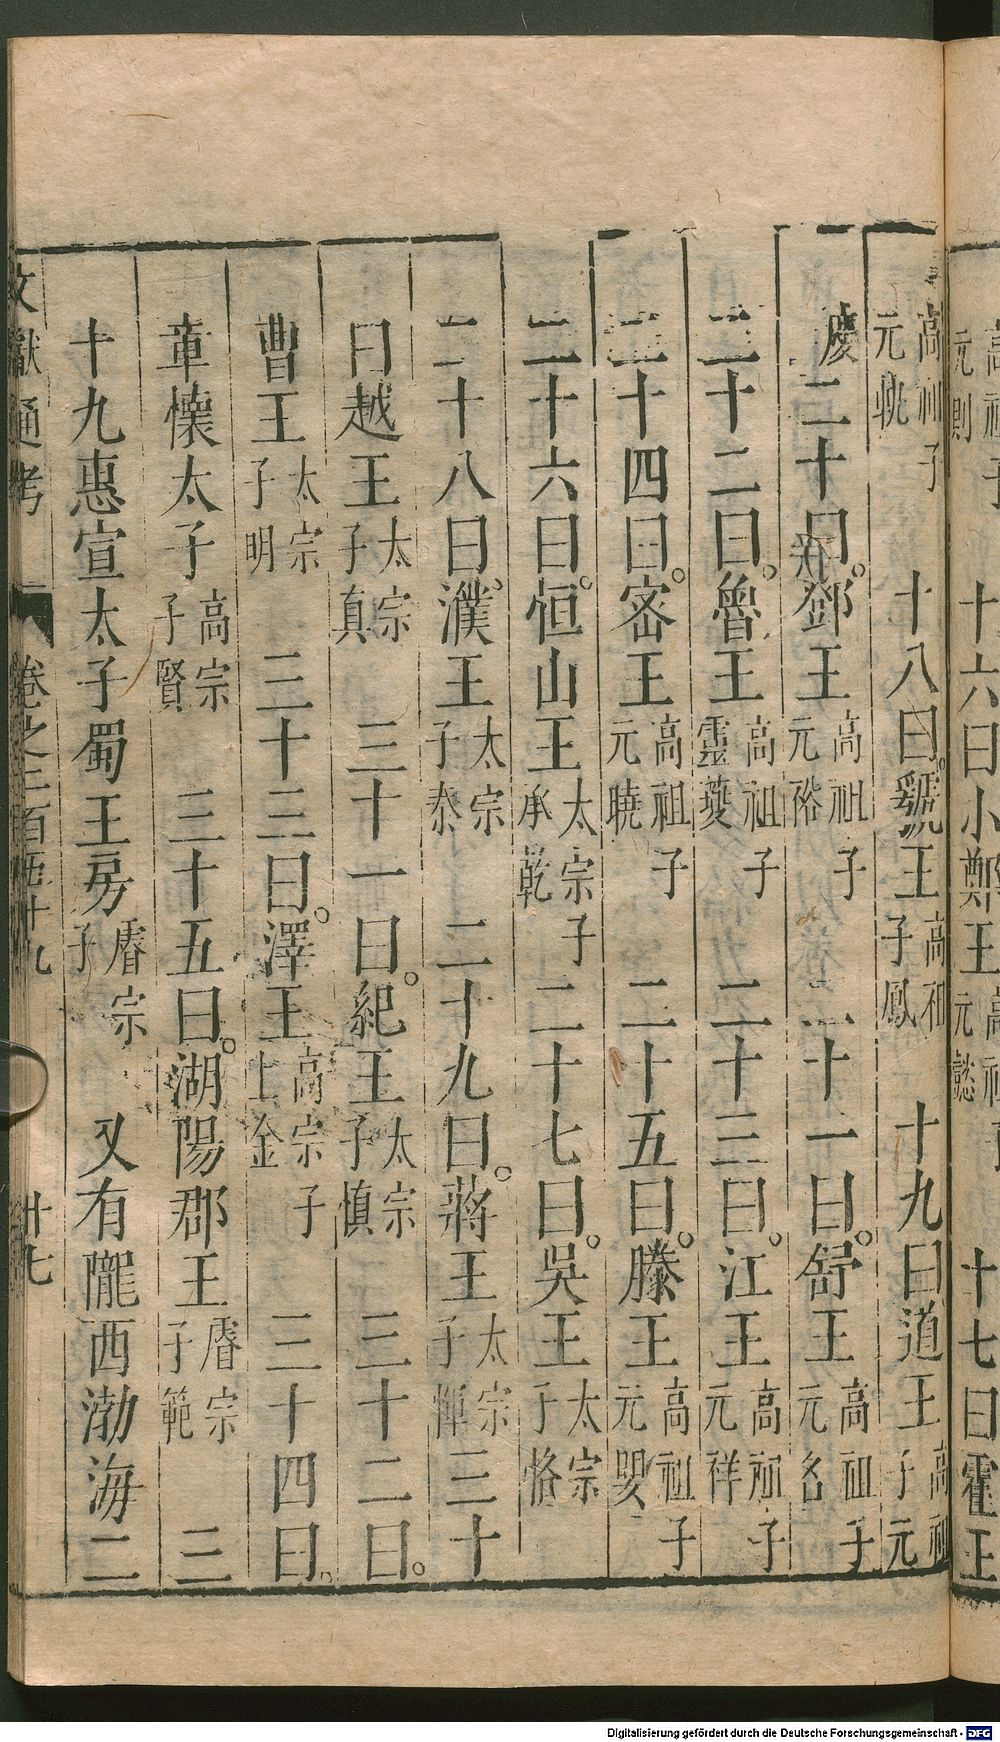 高祖子元則　十六曰小鄭王高祖子元懿　十七曰霍王
高祖子元軌　十八曰虢王高祖子鳳　十九曰道王高祖子元
慶　二十曰鄧王高祖子元裕　二十一曰舒王高祖子元名
二十二曰魯王高祖子靈夔　二十三曰江王高祖子元祥
二十四曰密王高祖子元曉　二十五曰滕王高祖子元嬰
二十六曰恒山王太宗子承乾　二十七曰吳王太宗子恪
二十八曰濮王太宗子泰　二十九曰蔣王太宗子惲　三十
曰越王太宗子真　三十一曰紀王太宗子慎　三十二曰
曹王太宗子明　三十三曰澤王高宗子上金　三十四曰
章懷太子高宗子賢　三十五曰湖陽郡王睿宗子範　三
十九惠宣太子蜀王房睿宗子　又有隴西渤海二
文獻通考　卷之二百五十九　廿七
Digitalisierung gefördert durch die Deutsche Forschungsgemeinschaft - DFG